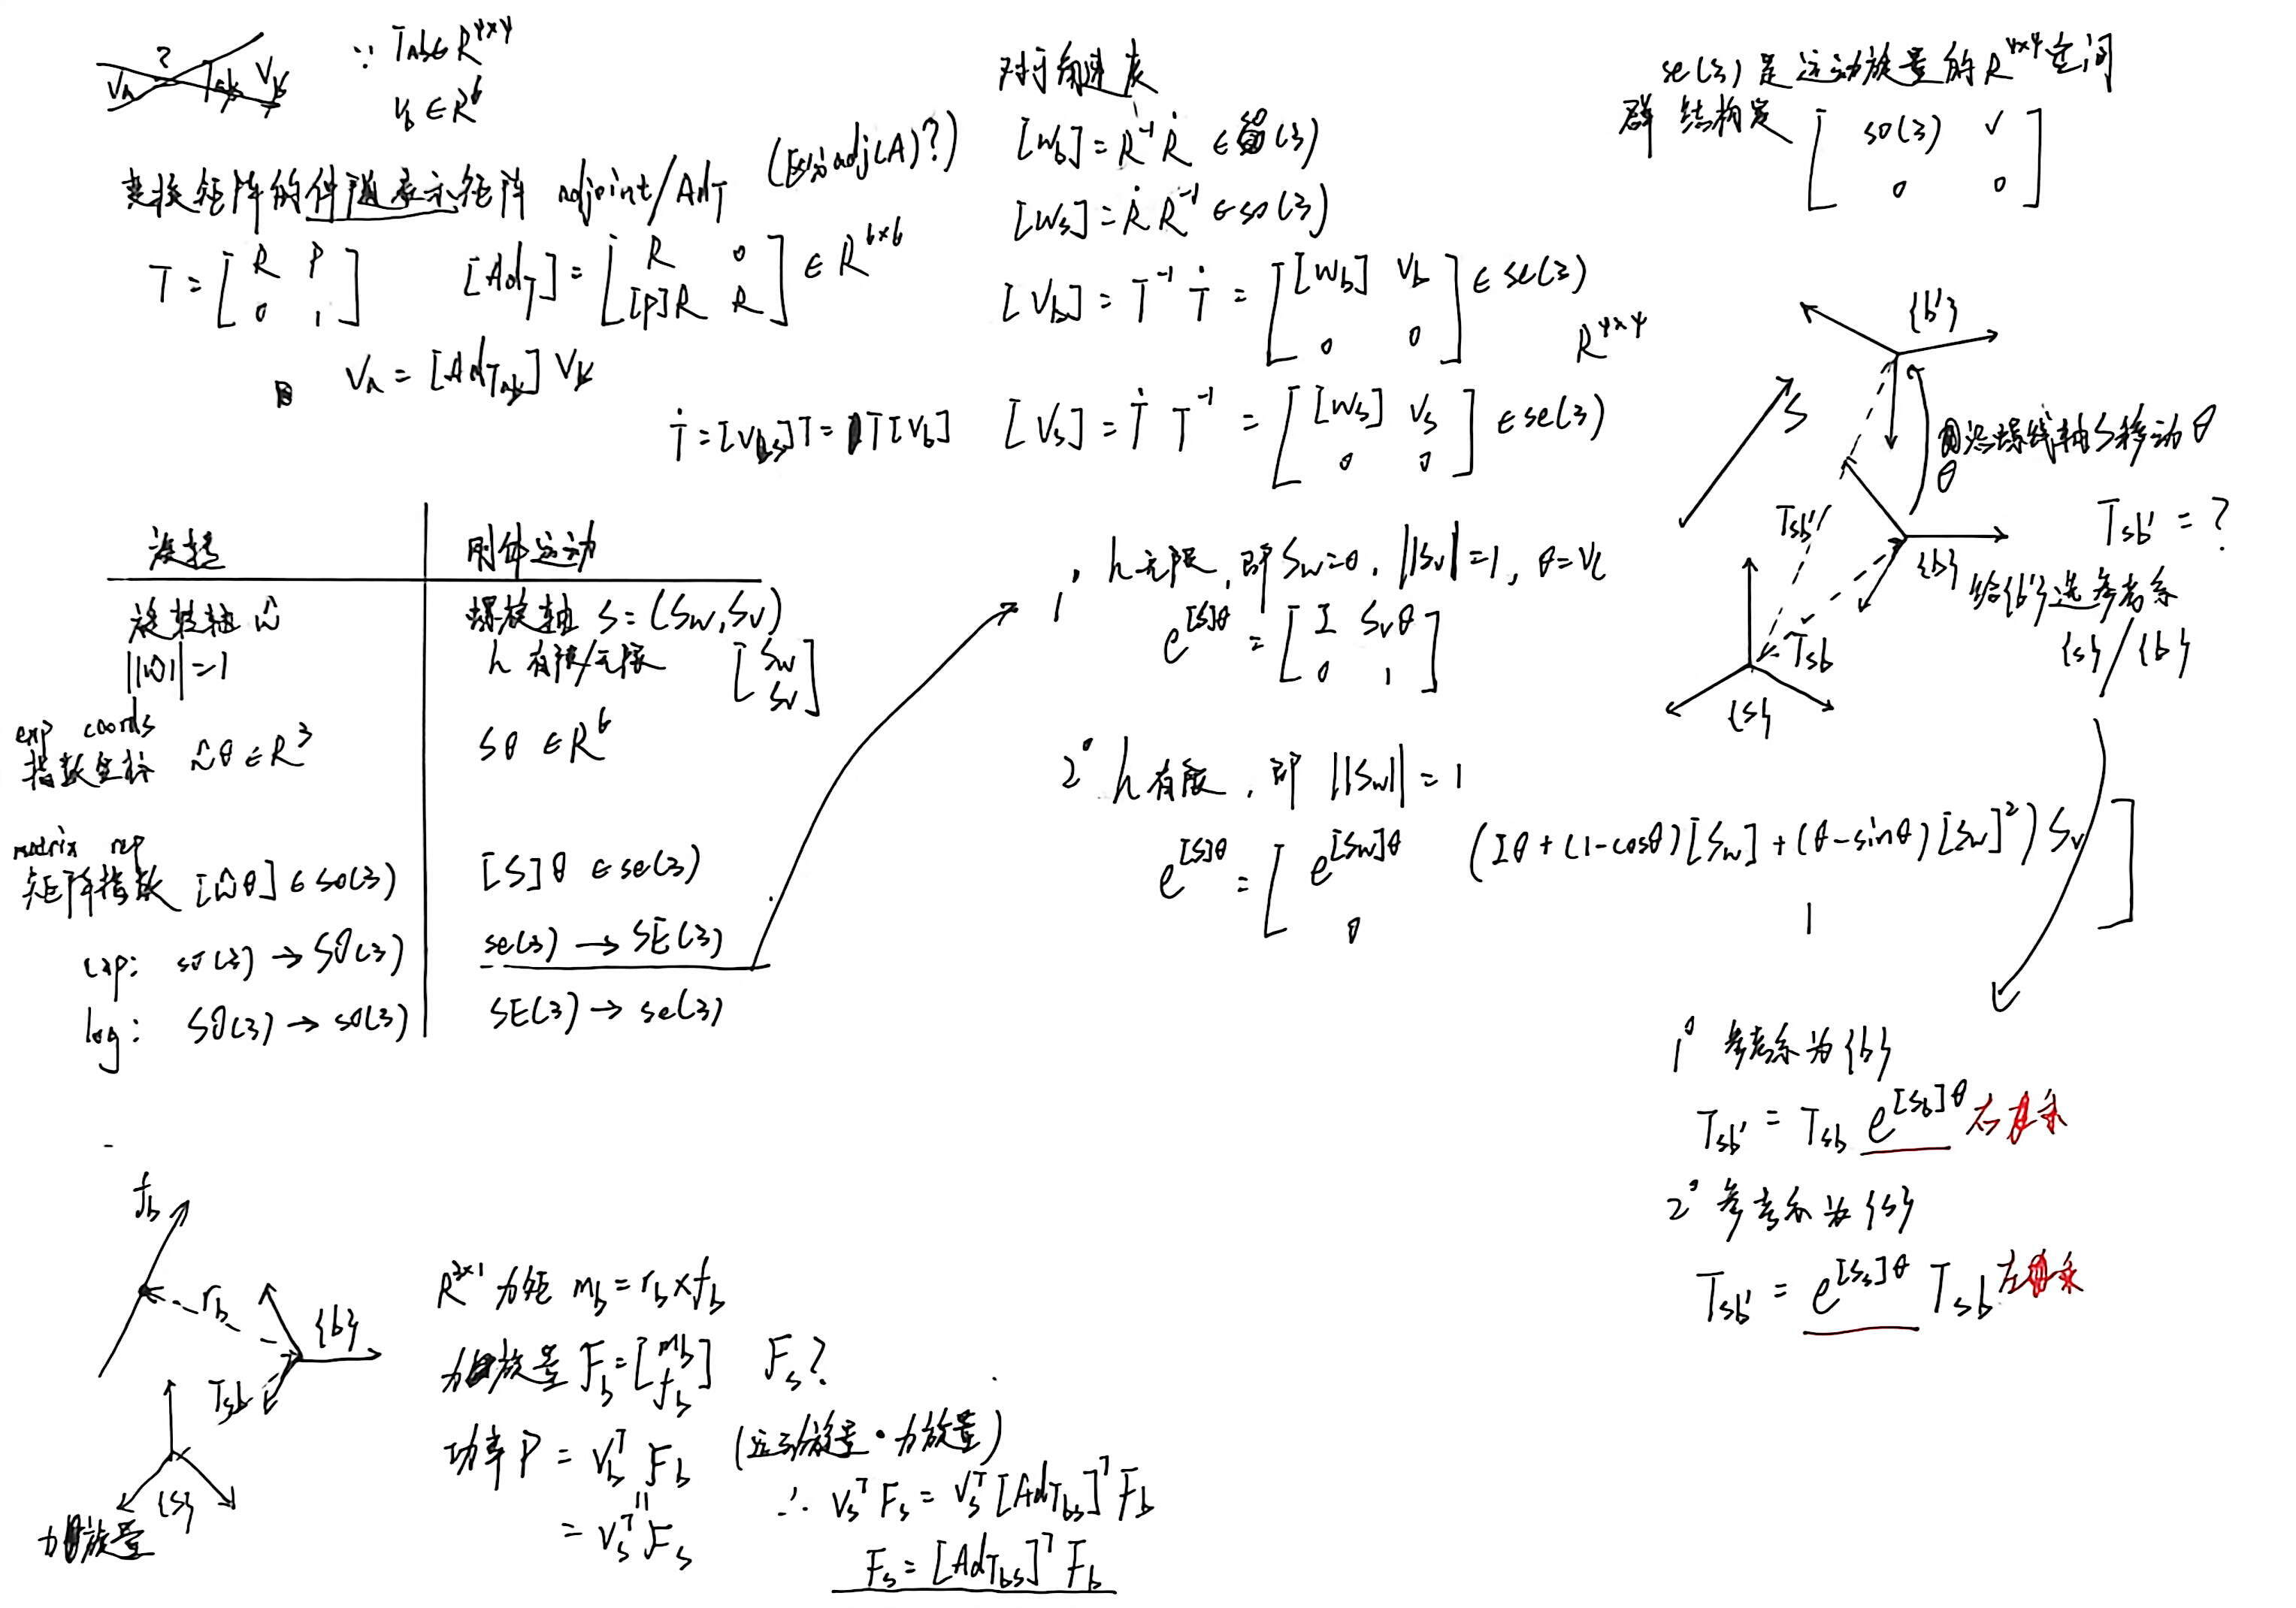 ∵ Tab∈R^{4×4}
V_b ∈ R^6
变换矩阵的伴随表示矩阵 adjoint/Ad_T (区分adj(A)?)
T = [R P; 0 1] [Ad_T] = [R 0; [P]R R] ∈ R^{6×6}
V_a = [Ad_{T_{ab}}] V_b
对于角速度
[W_b] = R^{-1} Ṙ ∈ so(3)
[W_s] = Ṙ R^{-1} ∈ so(3)
[V_b] = T^{-1} Ṫ = [[W_b] V_b; 0 0] ∈ se(3)
R^{4×4}
Ṫ = [V_s]T = T[V_b] [V_s] = Ṫ T^{-1} = [[W_s] V_s; 0 0] ∈ se(3)
se(3) 是运动旋量的 R^{4×4}空间
群结构定 [so(3) v; 0 0]
旋转 刚体运动
旋转轴 ŵ 螺旋轴 S = (S_w, S_v)
||ŵ|| = 1 h 有限/无限 [S_w; S_v]
exp coords
指数坐标 ŵθ ∈ R^3 Sθ ∈ R^6
matrix rep
矩阵指数 [ŵθ] ∈ so(3) [S]θ ∈ se(3)
exp: so(3) → SO(3) se(3) → SE(3)
log: SO(3) → so(3) SE(3) → se(3)
1° h无限, 即 S_w=0, ||S_v||=1, θ=
e^{[S]θ} = [I S_vθ; 0 1]
2° h有限, 即 ||S_w|| = 1
e^{[S]θ} = [e^{[S_w]θ} (Iθ + (1-cosθ)[S_w] + (θ-sinθ)[S_w]^2) S_v; 0 1]
{b'}
S
沿螺线轴S移动θ
θ
T_{sb'}
T_{sb'} = ?
{b}
给{b'}选参考系
{s} / {b}
T_{sb}
{s}
1° 参考系为{b}
T_{sb'} = T_{sb} e^{[S_b]θ} 右乘
2° 参考系为{s}
T_{sb'} = e^{[S_s]θ} T_{sb} 左乘
f_b
r_b
{b}
T_{sb}
{s}
力旋量
R^{3×1} 力矩 m_b = r_b × f_b
力旋量 F_b = [m_b; f_b] F_s?
功率 P = V_b^T F_b (运动旋量·力旋量)
= V_s^T F_s
∴ V_s^T F_s = V_s^T [Ad_{T_{bs}}]^T F_b
F_s = [Ad_{T_{bs}}]^T F_b